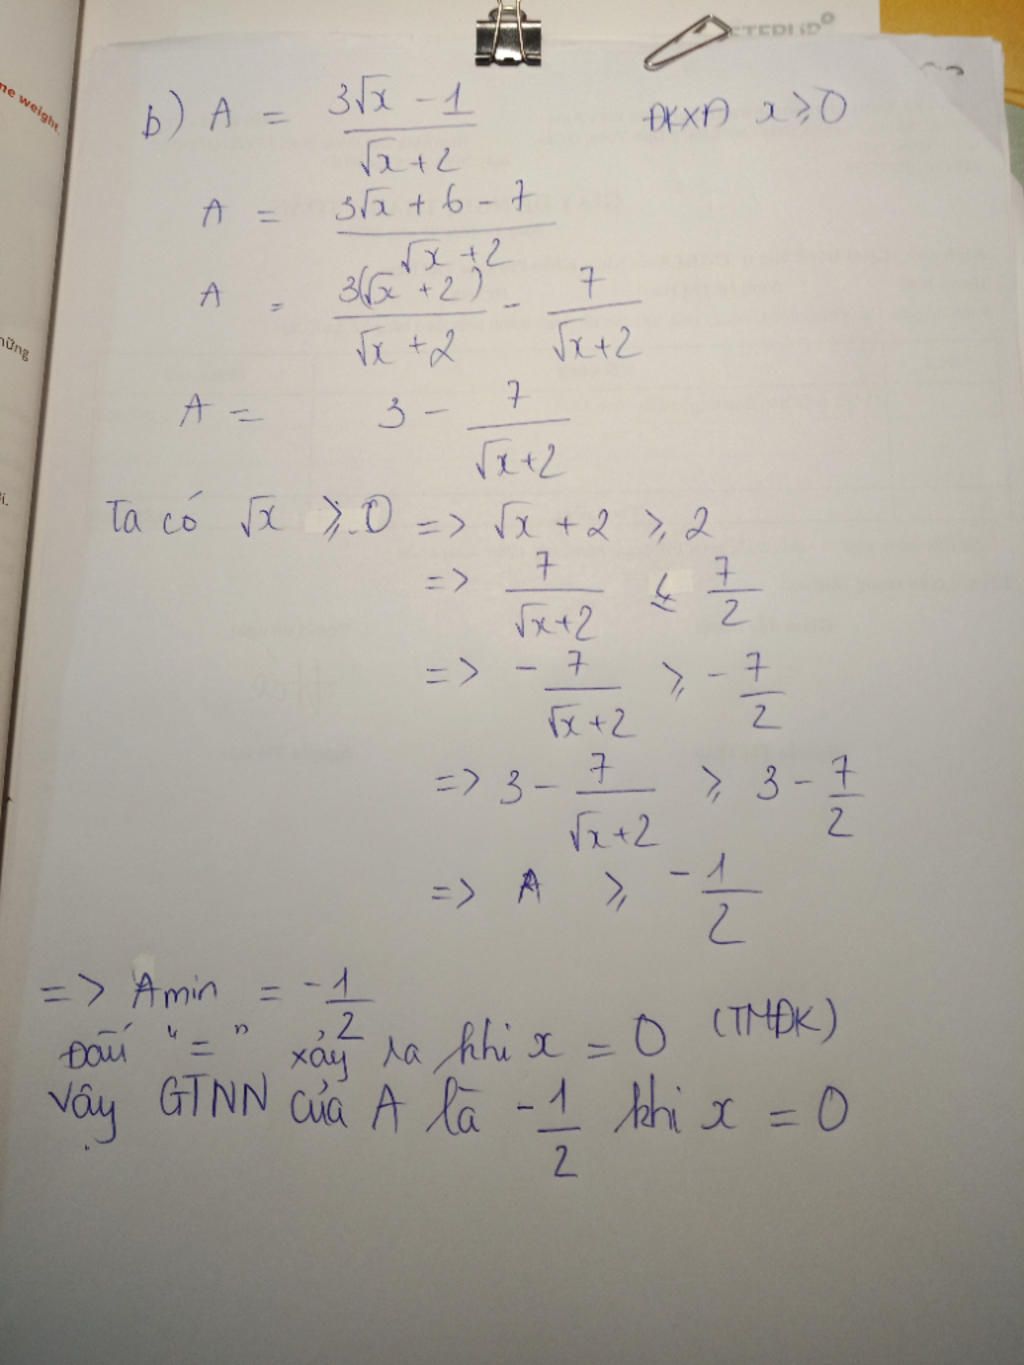 ne weight.
hững
b) A = (3√x - 1)/(√x + 2) ĐKXĐ x ≥ 0
A = (3√x + 6 - 7)/(√x + 2)
A = 3(√x + 2)/(√x + 2) - 7/(√x + 2)
A = 3 - 7/(√x + 2)
Ta có √x ≥ 0 => √x + 2 ≥ 2
=> 7/(√x + 2) ≤ 7/2
=> - 7/(√x + 2) ≥ - 7/2
=> 3 - 7/(√x + 2) ≥ 3 - 7/2
=> A ≥ - 1/2
=> Amin = - 1/2
Dấu "=" xảy ra khi x = 0 (TMĐK)
Vậy GTNN của A là - 1/2 khi x = 0